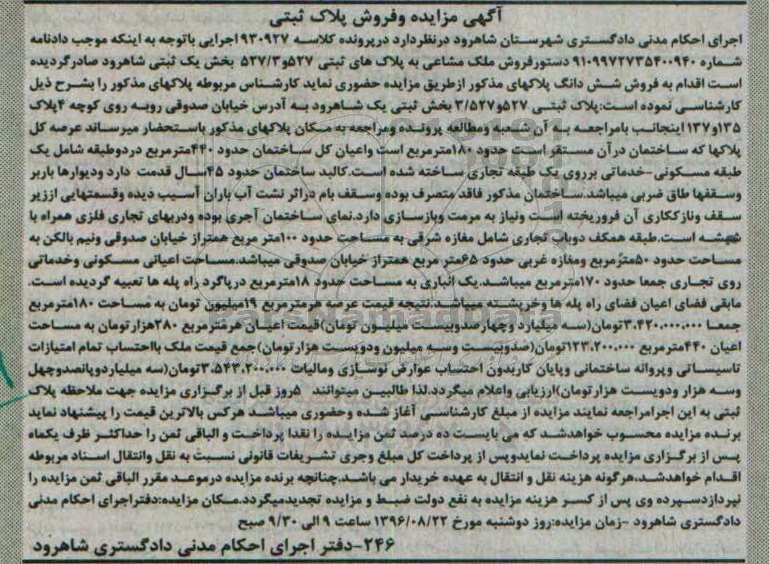 آگهی مزایده وفروش پلاک ثبتی
اجرای احکام مدنی دادگستری شهرستان شاهرود درنظردارد درپرونده کلاسه ۹۳۰۹۲۷اجرایی باتوجه به اینکه موجب دادنامه
شماره ۹۱۰۹۹۷۲۷۳۵۴۰۰۹۴۰ دستورفروش ملک مشاعی به پلاک های ثبتی ۵۲۷و۵۳۷/۳ بخش یک ثبتی شاهرود صادرگردیده
است اقدام به فروش شش دانگ پلاکهای مذکور ازطریق مزایده حضوری نماید کارشناس مربوطه پلاکهای مذکور را بشرح ذیل
کارشناسی نموده است:پلاک ثبتی ۵۲۷و۳/۵۲۷ بخش ثبتی یک شاهرود به آدرس خیابان صدوقی روبه روی کوچه ۴پلاک
۱۳۵و۱۳۷ اینجانب بامراجعه به آن شعبه ومطالعه پرونده ومراجعه به مکان پلاکهای مذکور باستحضار میرساند عرصه کل
پلاکها که ساختمان درآن مستقر است حدود ۱۸۰مترمربع است واعیان کل ساختمان حدود ۴۴۰مترمربع دردوطبقه شامل یک
طبقه مسکونی-خدماتی برروی یک طبقه تجاری ساخته شده است.کالبد ساختمان حدود ۴۵سال قدمت دارد ودیوارها باربر
وسقفها طاق ضربی میباشد.ساختمان مذکور فاقد متصرف بوده وسقف بام دراثر نشت آب باران آسیب دیده وقسمتهایی اززیر
سقف ونازککاری آن فروریخته است ونیاز به مرمت وبازسازی دارد.نمای ساختمان آجری بوده ودربهای تجاری فلزی همراه با
شیشه است.طبقه همکف دوباب تجاری شامل مغازه شرقی به مساحت حدود ۱۰۰متر مربع همتراز خیابان صدوقی ونیم بالکن به
مساحت حدود ۵۰مترمربع ومغازه غربی حدود ۶۵متر مربع همتراز خیابان صدوقی میباشد.مساحت اعیانی مسکونی وخدماتی
روی تجاری جمعا حدود ۱۷۰مترمربع میباشد.یک انباری به مساحت حدود ۱۸مترمربع درپاگرد راه پله ها تعبیه گردیده است.
مابقی فضای اعیان فضای راه پله ها وخرپشته میباشد.نتیجه قیمت عرصه هرمترمربع ۱۹میلیون تومان به مساحت ۱۸۰مترمربع
جمعا ۳،۴۲۰،۰۰۰،۰۰۰تومان(سه میلیارد وچهارصدوبیست میلیون تومان)قیمت اعیان هرمترمربع ۲۸۰هزارتومان به مساحت
اعیان ۴۴۰مترمربع ۱۲۳،۲۰۰،۰۰۰تومان(صدوبیست وسه میلیون ودویست هزارتومان)جمع قیمت ملک بااحتساب تمام امتیازات
تاسیساتی وپروانه ساختمانی وپایان کاربدون احتساب عوارض نوسازی ومالیات ۳،۵۴۳،۲۰۰،۰۰۰تومان(سه میلیاردوپانصدوچهل
وسه هزار ودویست هزارتومان)ارزیابی واعلام میگردد.لذا طالبین میتوانند ۵روز قبل از برگزاری مزایده جهت ملاحظه پلاک
ثبتی به این اجرامراجعه نمایند مزایده از مبلغ کارشناسی آغاز شده وحضوری میباشد هرکس بالاترین قیمت را پیشنهاد نماید
برنده مزایده محسوب خواهدشد که می بایست ده درصد ثمن مزایده را نقدا پرداخت و الباقی ثمن را حداکثر ظرف یکماه
پس از برگزاری مزایده پرداخت نمایدوپس از پرداخت کل مبلغ وجری تشریفات قانونی نسبت به نقل وانتقال اسناد مربوطه
اقدام خواهدشد.هرگونه هزینه نقل و انتقال به عهده خریدار می باشد.چنانچه برنده مزایده درموعد مقرر الباقی ثمن مزایده را
نپردازدسپرده وی پس از کسر هزینه مزایده به نفع دولت ضبط و مزایده تجدیدمیگردد.مکان مزایده:دفتراجرای احکام مدنی
دادگستری شاهرود -زمان مزایده:روز دوشنبه مورخ ۱۳۹۶/۰۸/۲۲ ساعت ۹ الی ۹/۳۰ صبح
۲۴۶-دفتر اجرای احکام مدنی دادگستری شاهرود
ParsNamadData